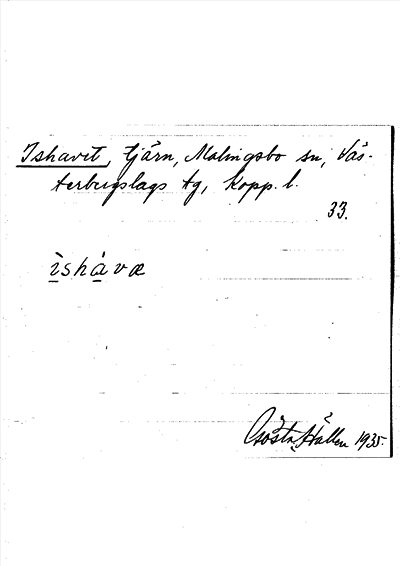 Ishavet, tjärn, Malingsbo sn, Väs-
terbergslags tg, Kopp. l.
33.
ìshàvæ
Gösta Hallén 1935.